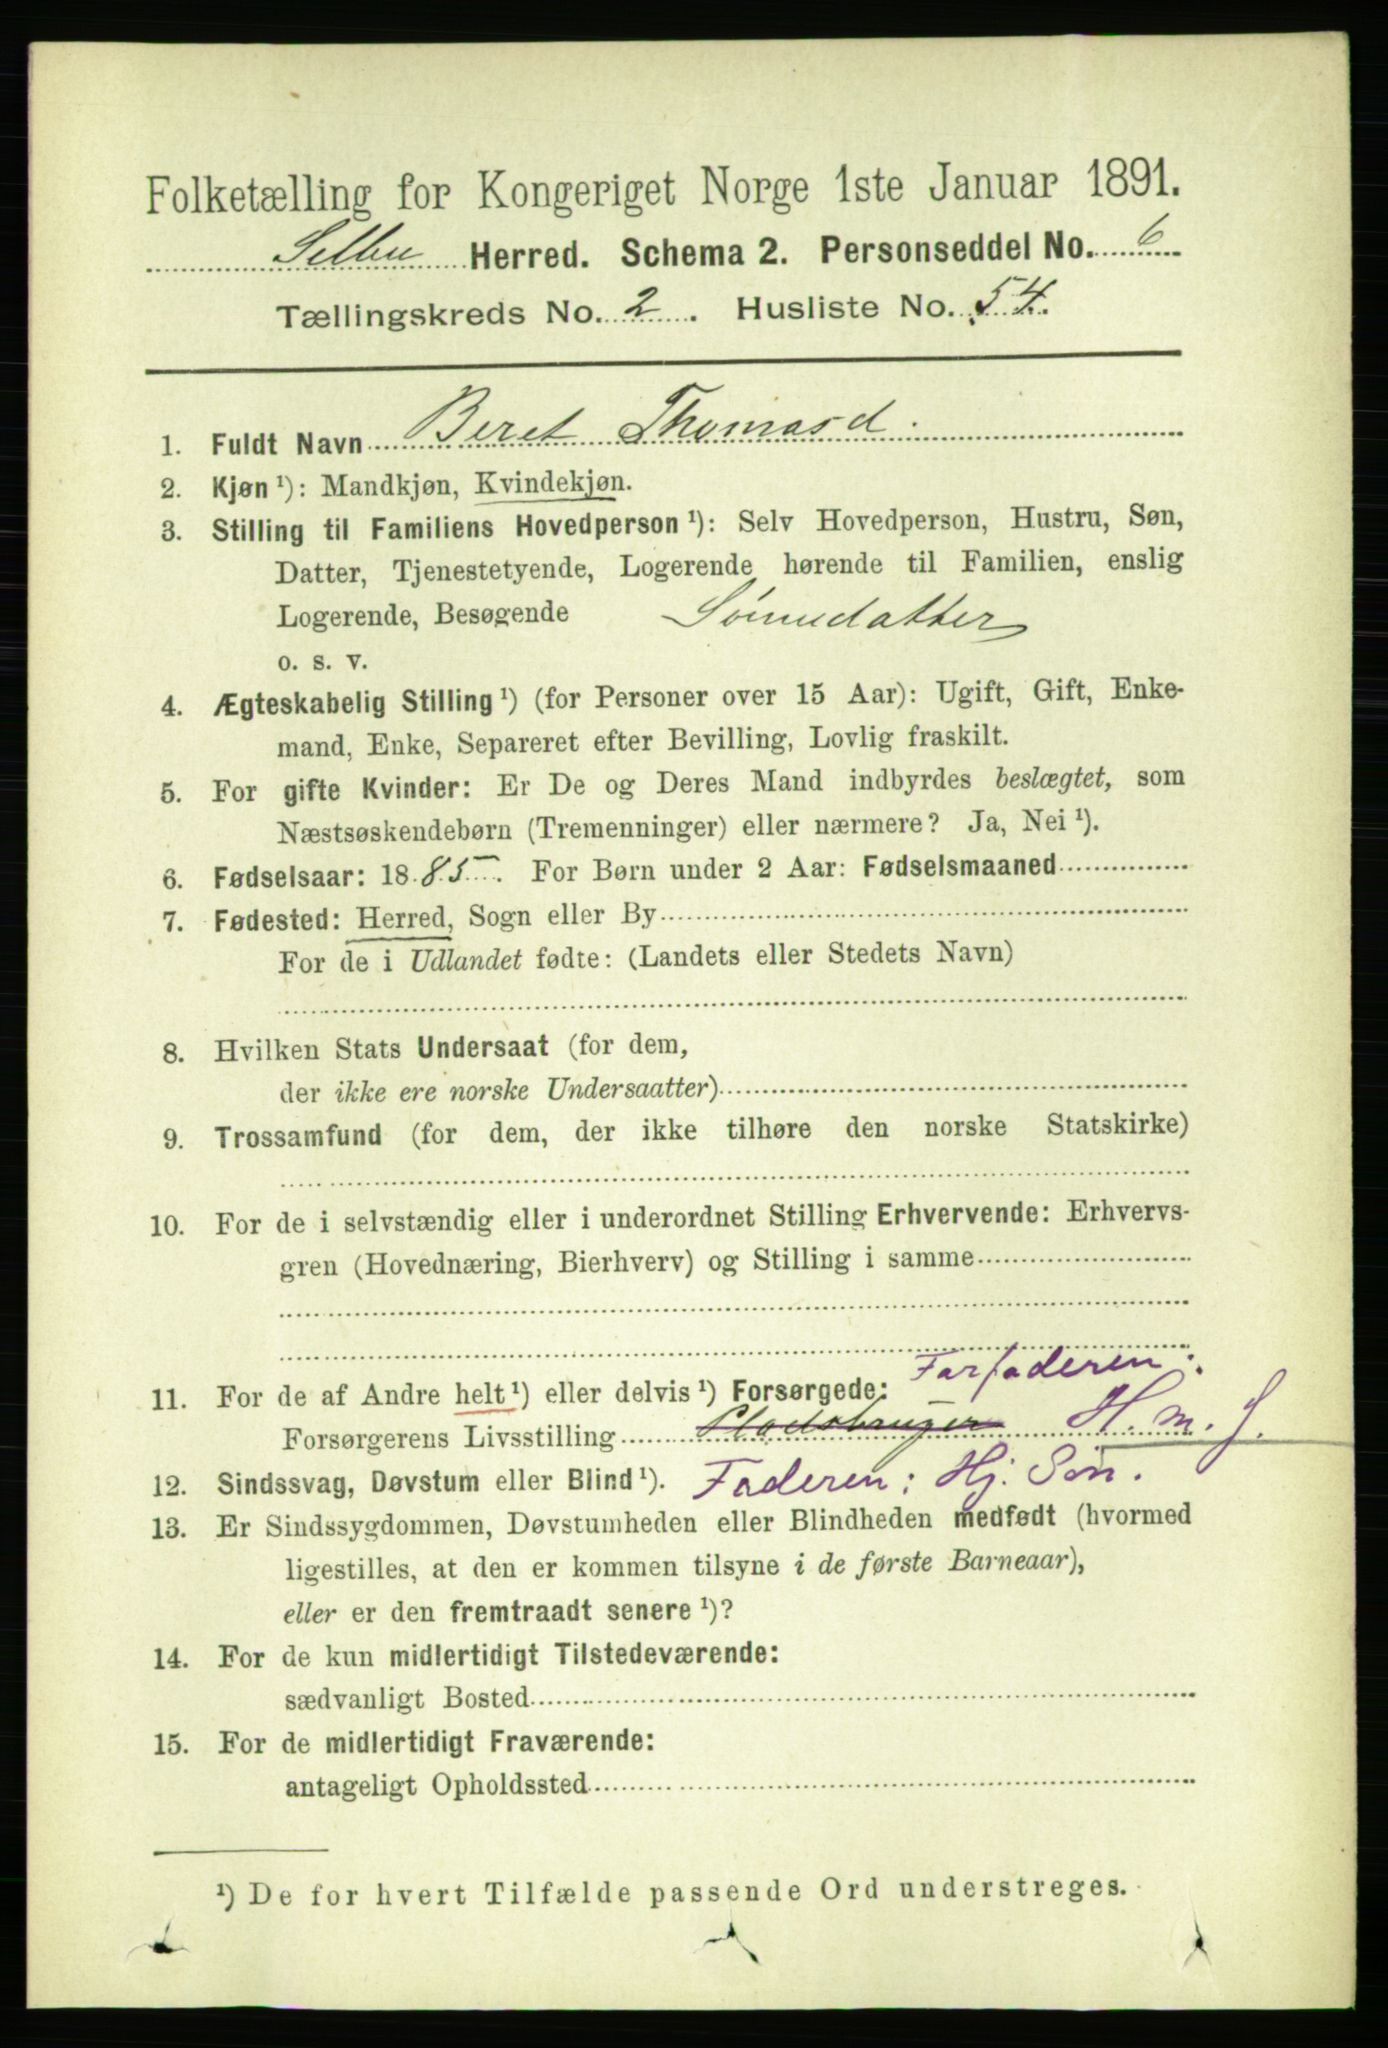 Folketælling for Kongeriget Norge 1ste Januar 1891.
Selbu Herred. Schema 2. Personseddel No. 6
Tællingskreds No. 2. Husliste No. 54.
1. Fuldt Navn Beret Thomasd.
2. Kjøn ¹): Mandkjøn, Kvindekjøn.
3. Stilling til Familiens Hovedperson ¹): Selv Hovedperson, Hustru, Søn,
Datter, Tjenestetyende, Logerende hørende til Familien, enslig
Logerende, Besøgende Sønnedatter
o. s. v.
4. Ægteskabelig Stilling ¹) (for Personer over 15 Aar): Ugift, Gift, Enke-
mand, Enke, Separeret efter Bevilling, Lovlig fraskilt.
5. For gifte Kvinder: Er De og Deres Mand indbyrdes beslægtet, som
Næstsøskendebørn (Tremenninger) eller nærmere? Ja, Nei ¹).
6. Fødselsaar: 1885. For Børn under 2 Aar: Fødselsmaaned
7. Fødested: Herred, Sogn eller By
For de i Udlandet fødte: (Landets eller Stedets Navn)
8. Hvilken Stats Undersaat (for dem,
der ikke ere norske Undersaatter)
9. Trossamfund (for dem, der ikke tilhøre den norske Statskirke)
10. For de i selvstændig eller i underordnet Stilling Erhvervende: Erhvervs-
gren (Hovednæring, Bierhverv) og Stilling i samme
Farfaderen:
11. For de af Andre helt ¹) eller delvis ¹) Forsørgede:
Forsørgerens Livsstilling Pladsbruger H. m. J.
12. Sindssvag, Døvstum eller Blind ¹). Faderen: Hj. Søn.
13. Er Sindssygdommen, Døvstumheden eller Blindheden medfødt (hvormed
ligestilles, at den er kommen tilsyne i de første Barneaar),
eller er den fremtraadt senere ¹)?
14. For de kun midlertidigt Tilstedeværende:
sædvanligt Bosted
15. For de midlertidigt Fraværende:
antageligt Opholdssted
¹) De for hvert Tilfælde passende Ord understreges.